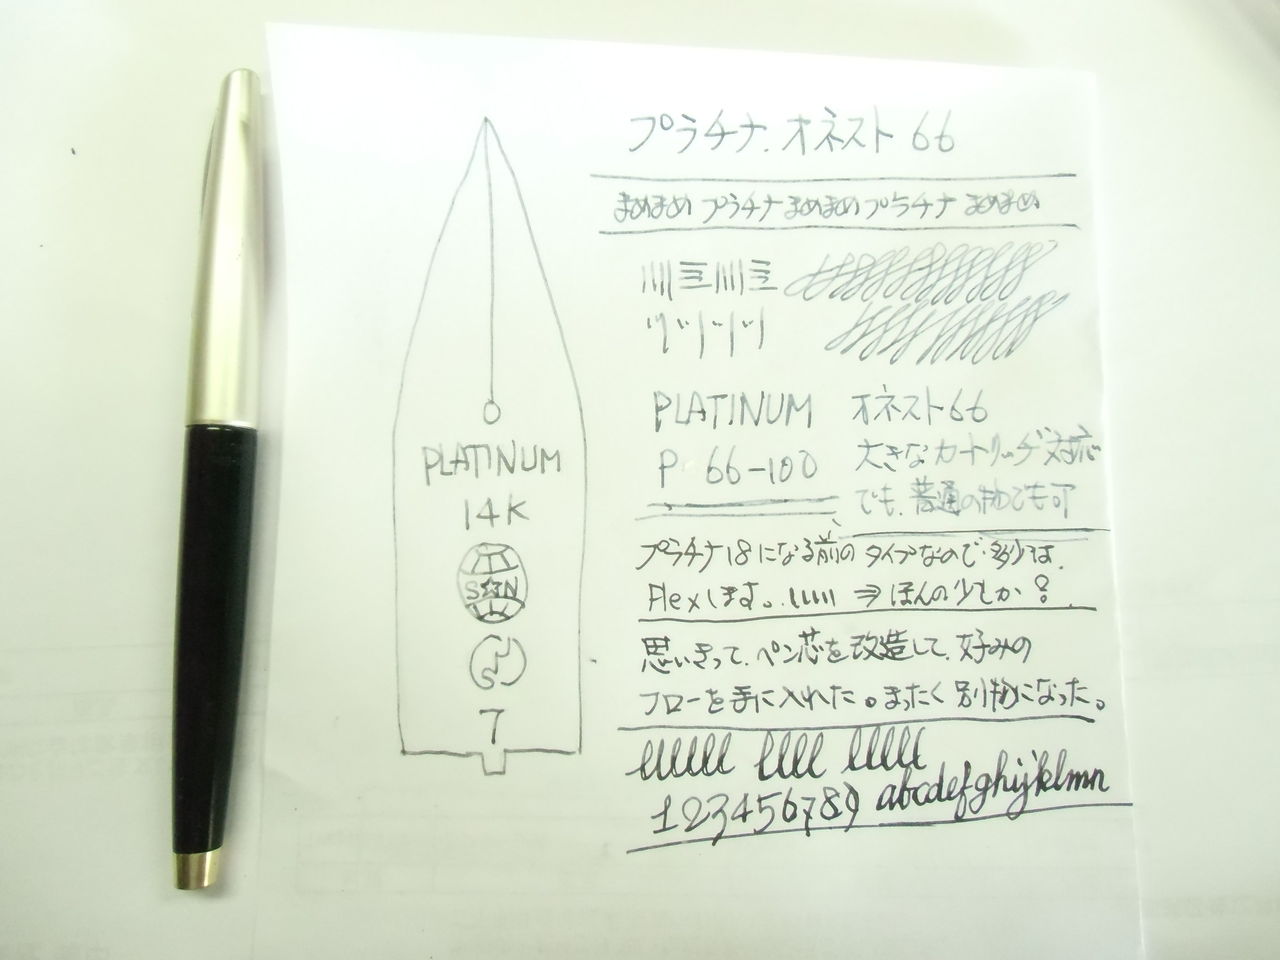 プラチナ.オネスト 66
まめまめ プラチナ まめまめ プラチナ まめまめ
PLATINUM オネスト66
P 66-100 大きなカートリッヂ対応
でも.普通の物でも可
プラチナ18になる前の タイプなので.多少は.
Flexします。 ⇒ ほんの少しか
思いきって.ペン芯を改造して.好みの
フローを手に入れた。まったく別物になった。
lllllll lllll lllll
123456789 abcdefghijklmn
PLATINUM
14K
S☆N
7